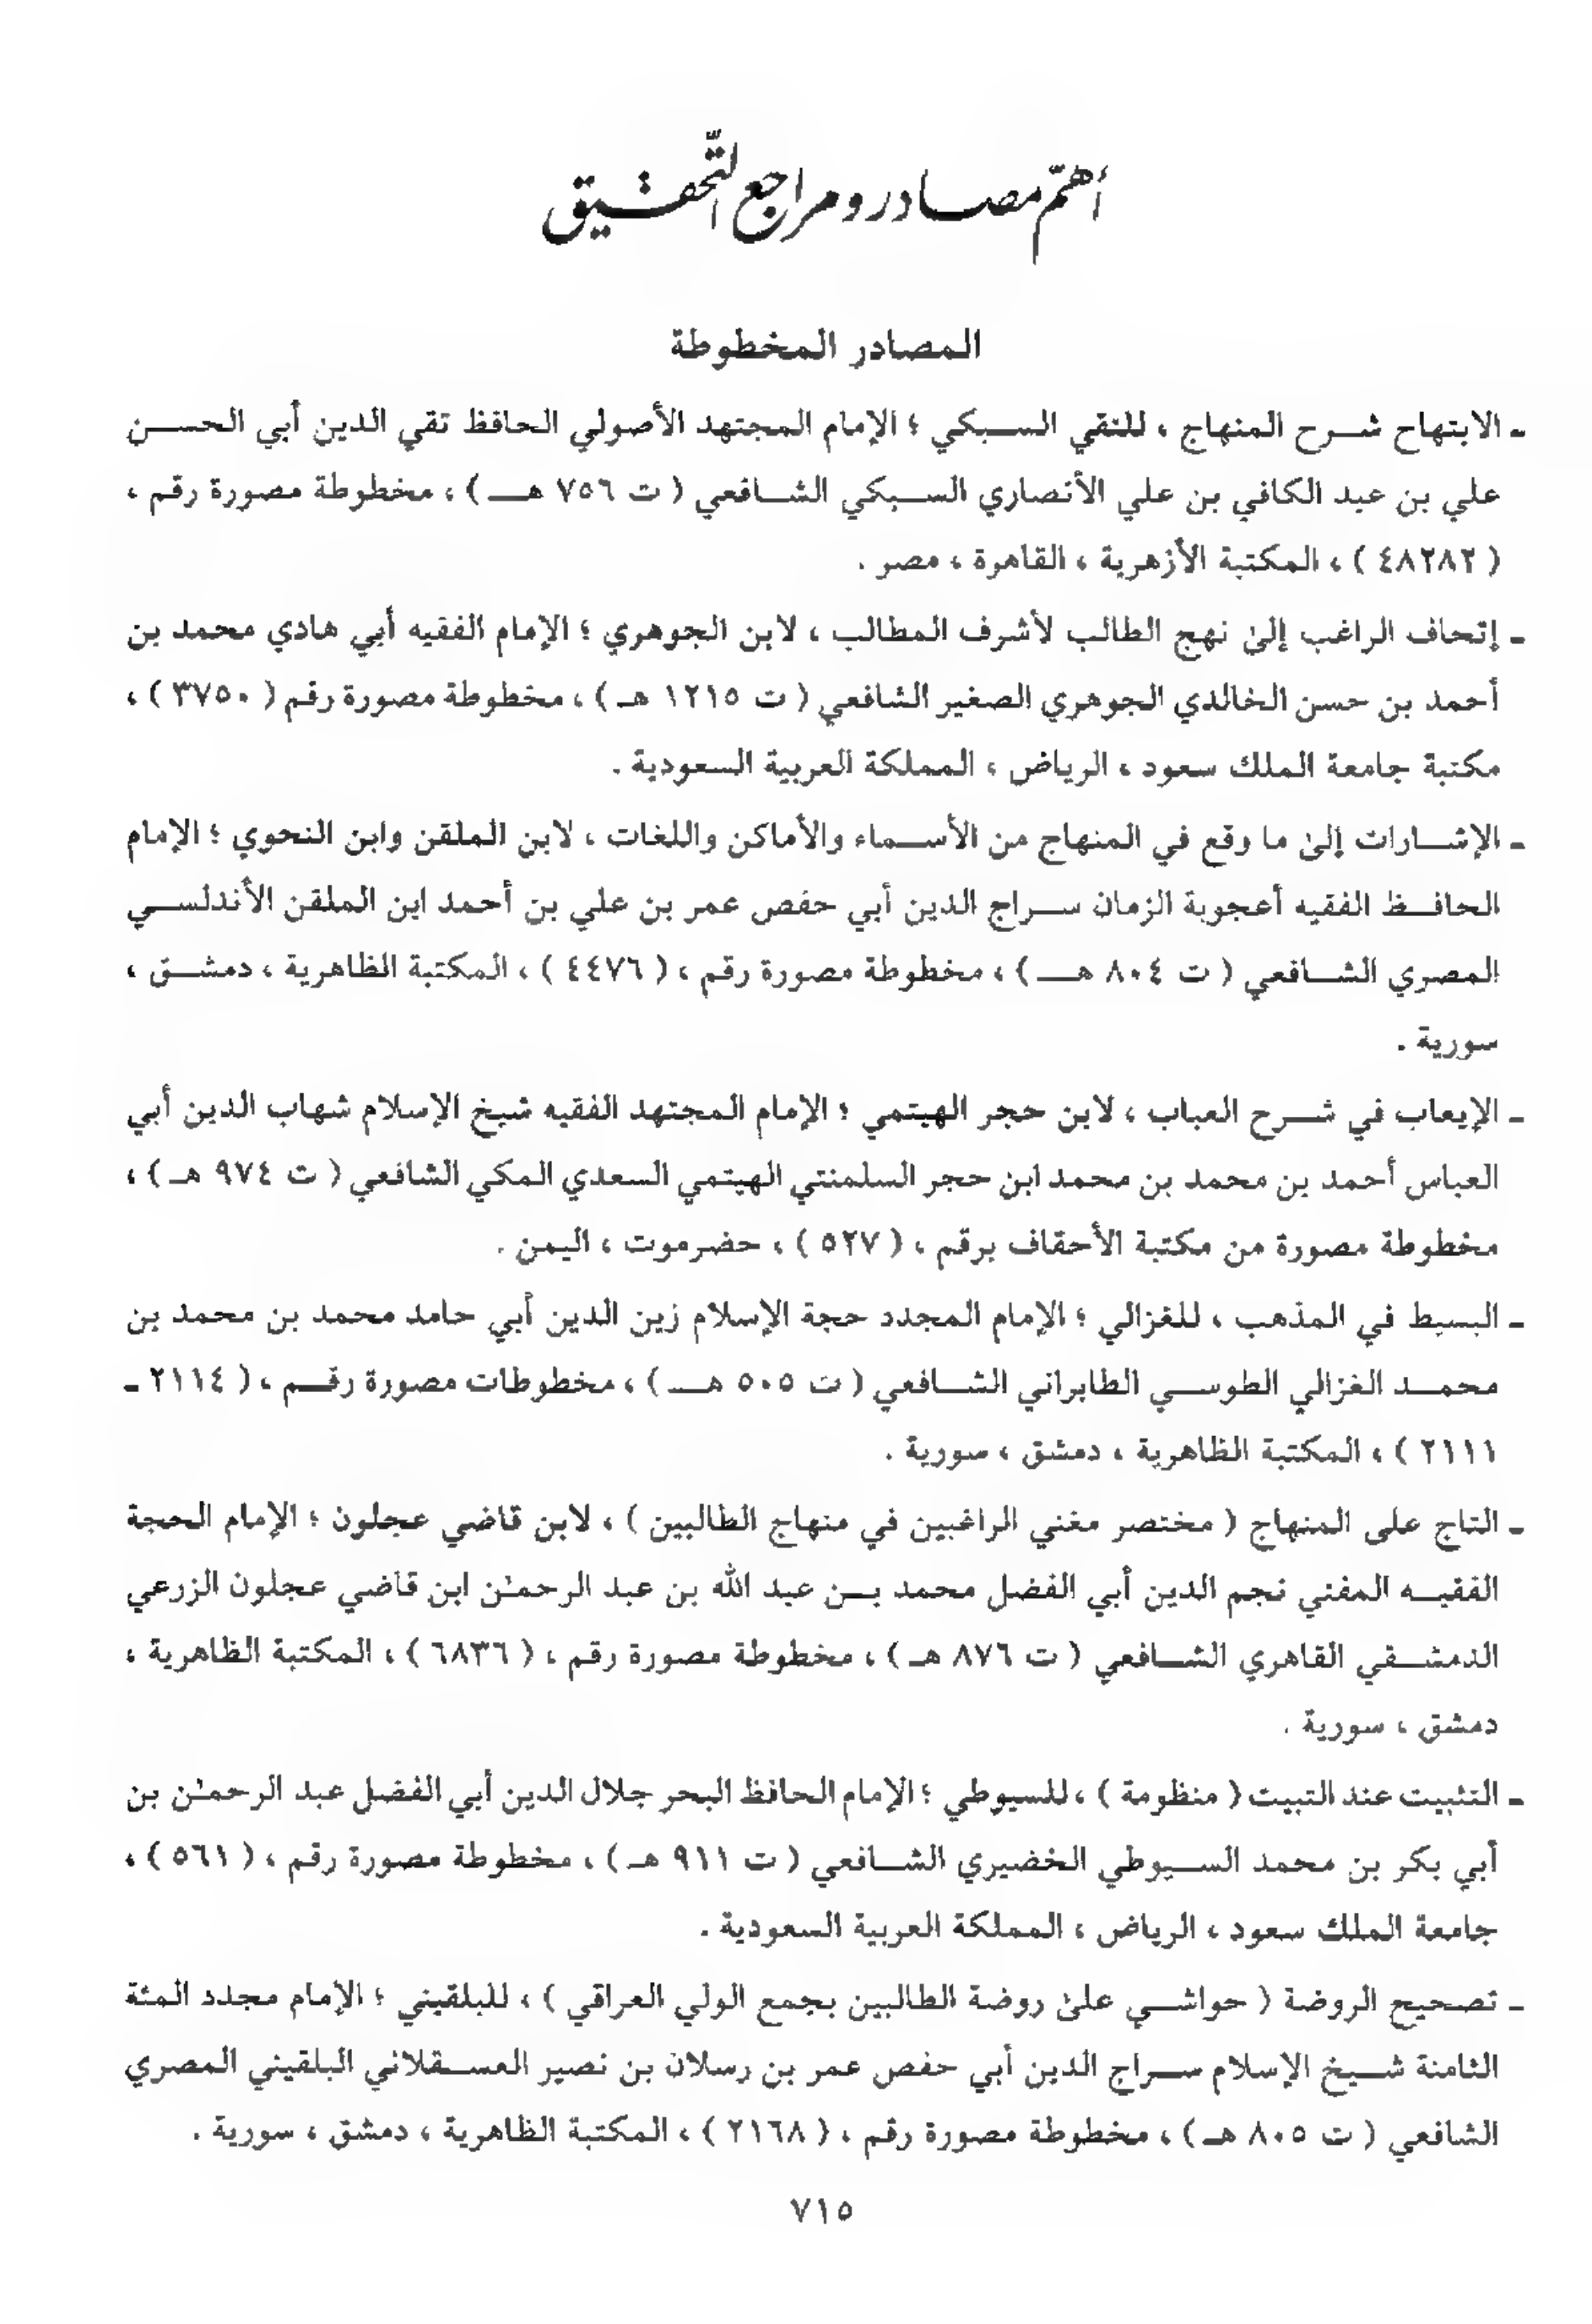 أهمّ مصادر ومراجع التّحقيق
المصادر المخطوطة
ـ الابتهاج شرح المنهاج ، للتقي السبكي ؛ الإمام المجتهد الأصولي الحافظ تقي الدين أبي الحسن
علي بن عبد الكافي بن علي الأنصاري السبكي الشافعي ( ت ٧٥٦ هـ ) ، مخطوطة مصورة رقم ،
( ٤٨٢٨٢ ) ، المكتبة الأزهرية ، القاهرة ، مصر .
ـ إتحاف الراغب إلىٰ نهج الطالب لأشرف المطالب ، لابن الجوهري ؛ الإمام الفقيه أبي هادي محمد بن
أحمد بن حسن الخالدي الجوهري الصغير الشافعي ( ت ١٢١٥ هـ ) ، مخطوطة مصورة رقم ( ٣٧٥٠ ) ،
مكتبة جامعة الملك سعود ، الرياض ، المملكة العربية السعودية .
ـ الإشارات إلىٰ ما وقع في المنهاج من الأسماء والأماكن واللغات ، لابن الملقن وابن النحوي ؛ الإمام
الحافظ الفقيه أعجوبة الزمان سراج الدين أبي حفص عمر بن علي بن أحمد ابن الملقن الأندلسي
المصري الشافعي ( ت ٨٠٤ هـ ) ، مخطوطة مصورة رقم ، ( ٤٤٧٦ ) ، المكتبة الظاهرية ، دمشق ،
سورية .
ـ الإيعاب في شرح العباب ، لابن حجر الهيتمي ؛ الإمام المجتهد الفقيه شيخ الإسلام شهاب الدين أبي
العباس أحمد بن محمد بن محمد ابن حجر السلمنتي الهيتمي السعدي المكي الشافعي ( ت ٩٧٤ هـ ) ،
مخطوطة مصورة من مكتبة الأحقاف برقم ، ( ٥٢٧ ) ، حضرموت ، اليمن .
ـ البسيط في المذهب ، للغزالي ؛ الإمام المجدد حجة الإسلام زين الدين أبي حامد محمد بن محمد بن
محمد الغزالي الطوسي الطابراني الشافعي ( ت ٥٠٥ هـ ) ، مخطوطات مصورة رقم ، ( ٢١١٤ ـ
٢١١١ ) ، المكتبة الظاهرية ، دمشق ، سورية .
ـ التاج على المنهاج ( مختصر مغني الراغبين في منهاج الطالبين ) ، لابن قاضي عجلون ؛ الإمام الحجة
الفقيه المفتي نجم الدين أبي الفضل محمد بن عبد الله بن عبد الرحمـٰن ابن قاضي عجلون الزرعي
الدمشقي القاهري الشافعي ( ت ٨٧٦ هـ ) ، مخطوطة مصورة رقم ، ( ٦٨٣٦ ) ، المكتبة الظاهرية ،
دمشق ، سورية .
ـ التثبيت عند التبيت ( منظومة ) ، للسيوطي ؛ الإمام الحافظ البحر جلال الدين أبي الفضل عبد الرحمـٰن بن
أبي بكر بن محمد السيوطي الخضيري الشافعي ( ت ٩١١ هـ ) ، مخطوطة مصورة رقم ، ( ٥٦١ ) ،
جامعة الملك سعود ، الرياض ، المملكة العربية السعودية .
ـ تصحيح الروضة ( حواشي علىٰ روضة الطالبين بجمع الولي العراقي ) ، للبلقيني ؛ الإمام مجدد المئة
الثامنة شيخ الإسلام سراج الدين أبي حفص عمر بن رسلان بن نصير العسقلاني البلقيني المصري
الشافعي ( ت ٨٠٥ هـ ) ، مخطوطة مصورة رقم ، ( ٢١٦٨ ) ، المكتبة الظاهرية ، دمشق ، سورية .
٧١٥